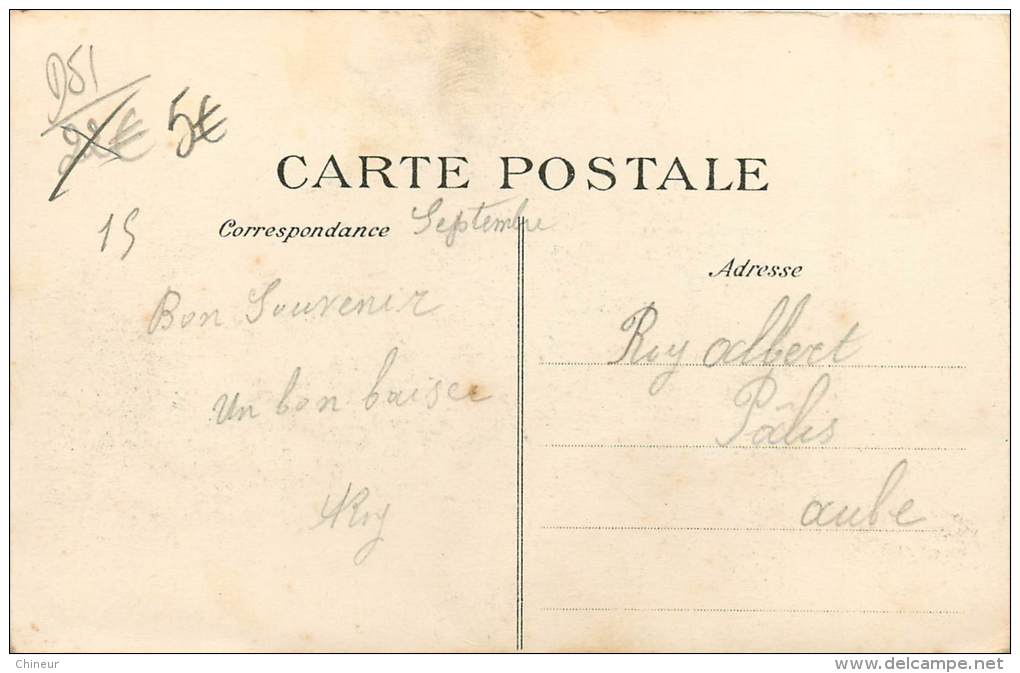 D51
22€ 5€
CARTE POSTALE
15 Correspondance Septembre
Adresse
Bon Souvenir
Un bon baiser
ARoy
Roy Albert
Pâlis
aube
Chineur
www.delcampe.net